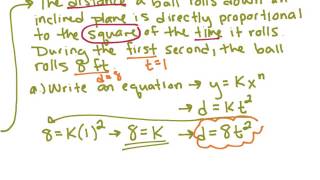 → The distance a ball rolls down an
inclined plane is directly proportional
to the square of the time it rolls.
During the first second, the ball
rolls 8 ft.
d=8 t=1
a.) Write an equation → y=Kxⁿ
→ d=Kt²
8=K(1)² → 8=K → d=8t²